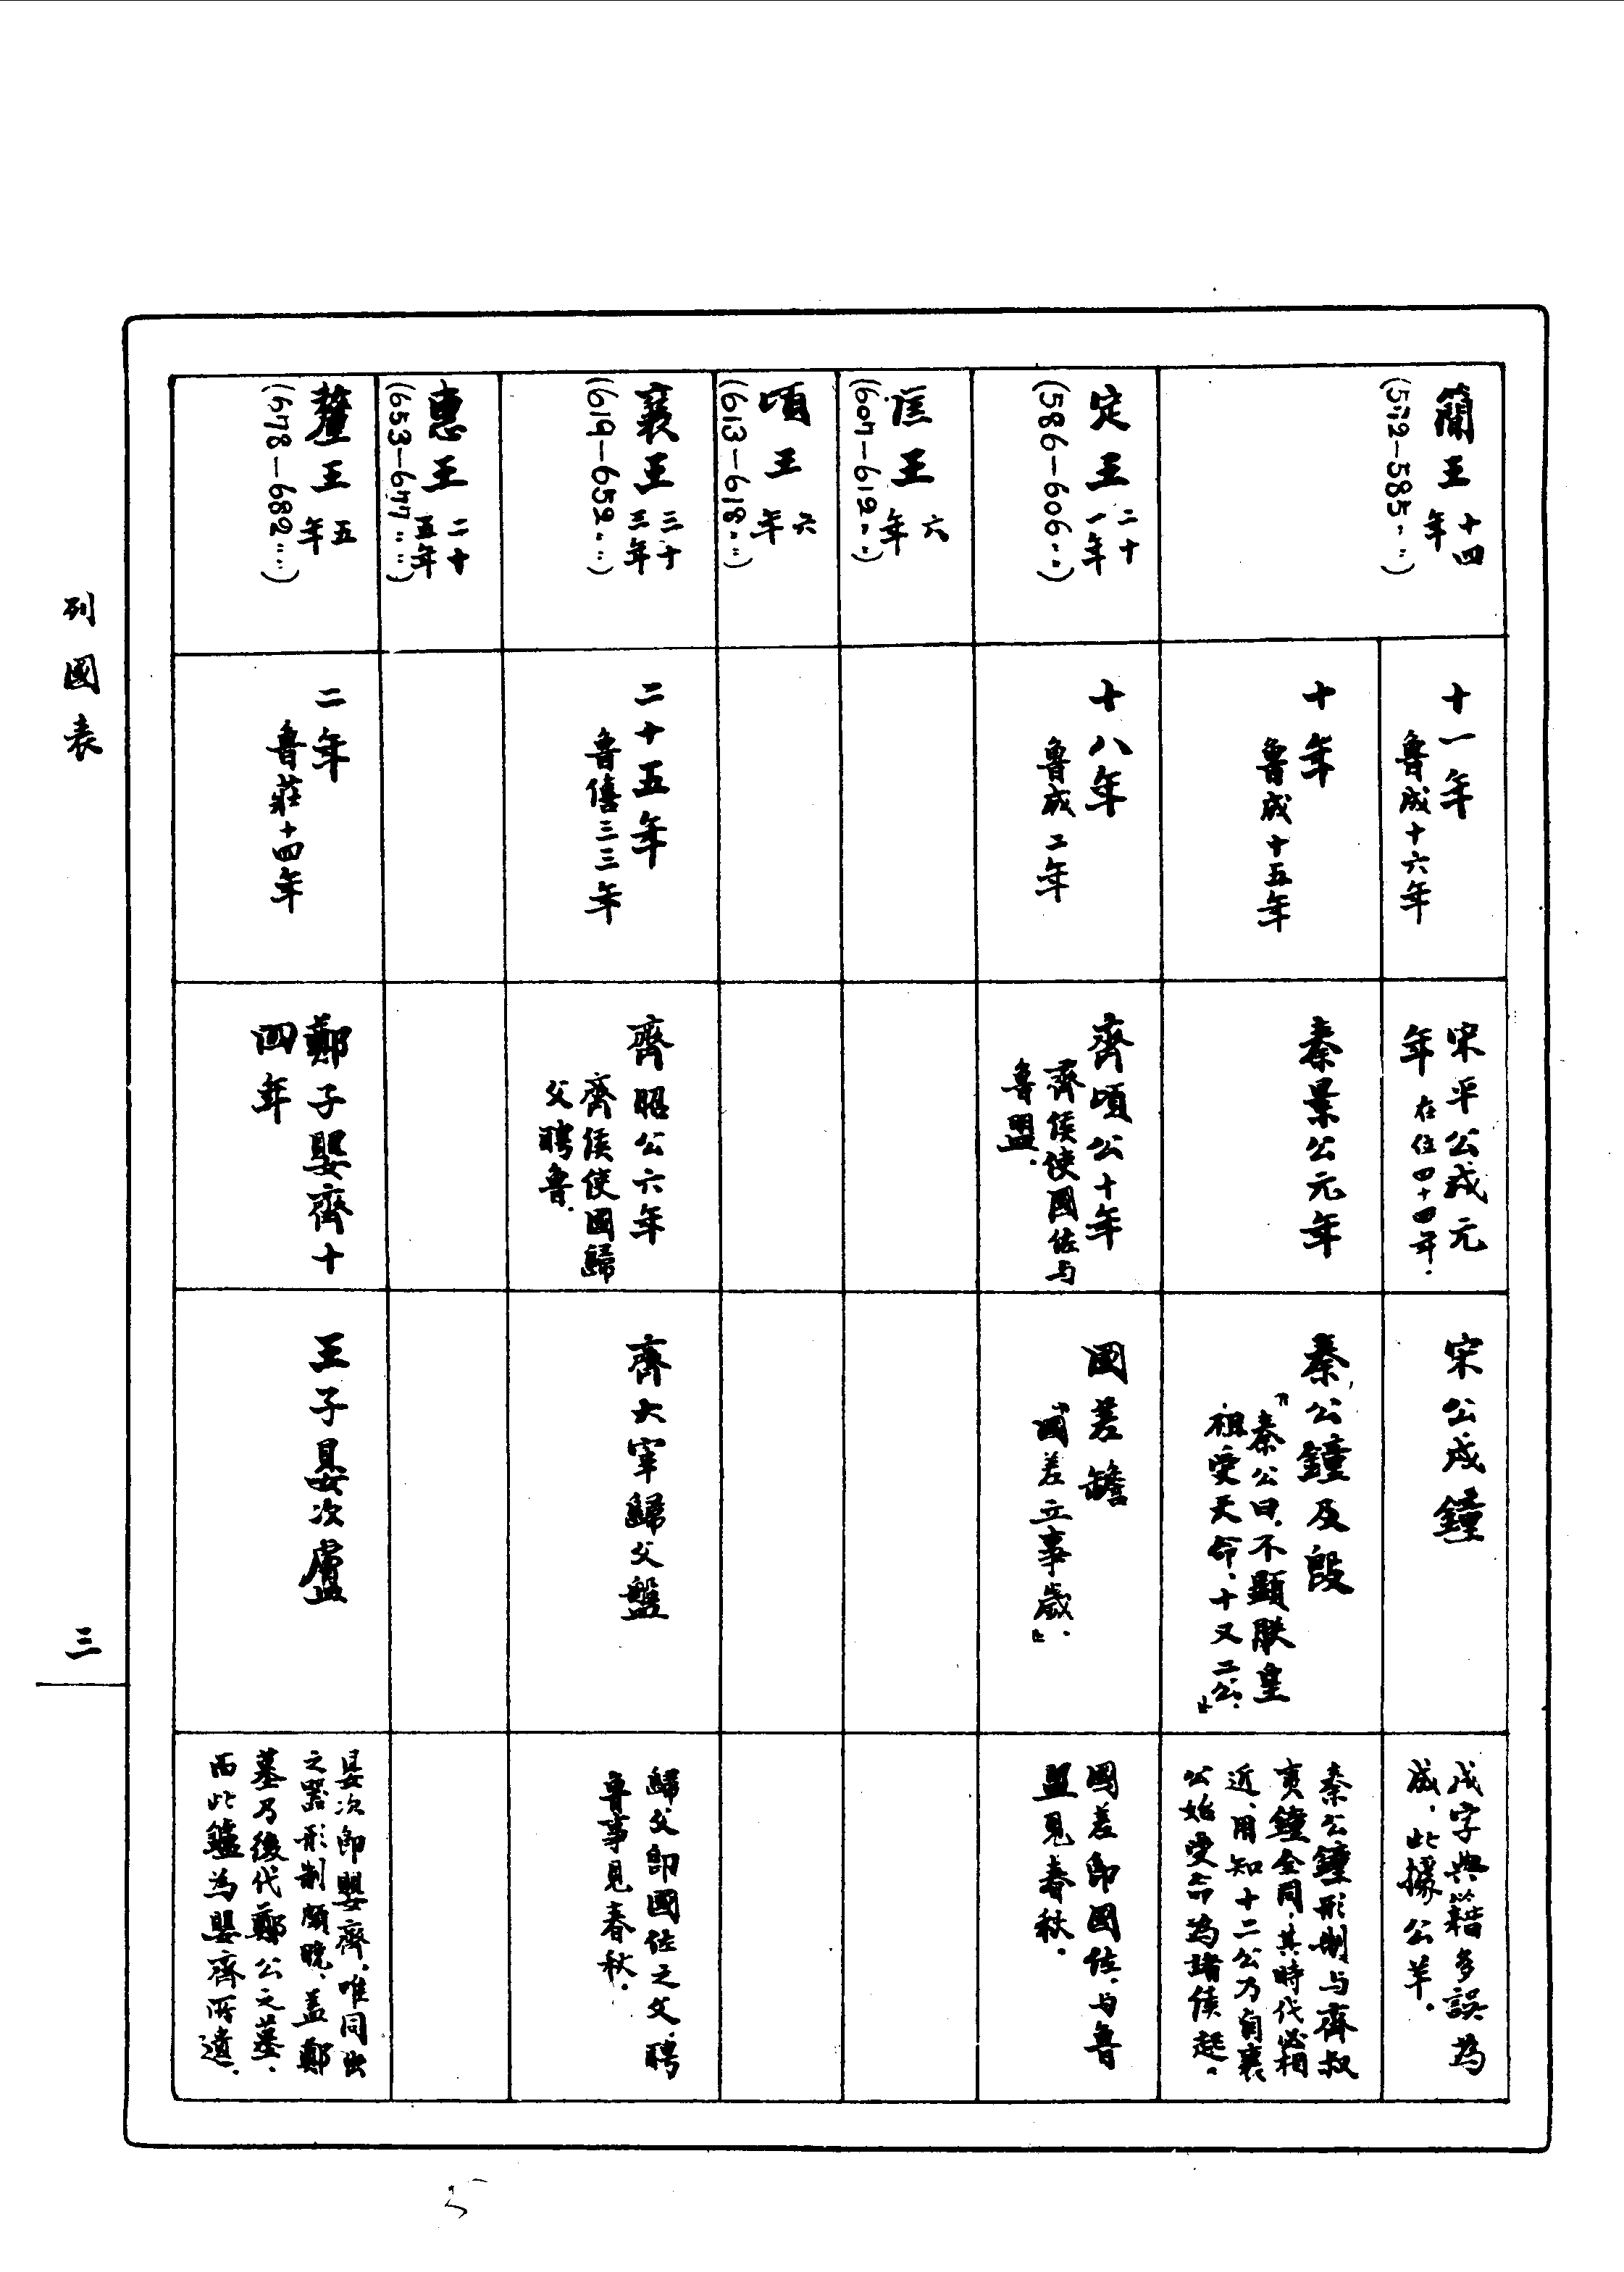 簡王十四年
(572—585〃〃)
十一年
魯成十六年
宋平公戍元
年在位四十四年.
宋公戍鐘
戍字典籍多誤為
成,此據公羊.
十年
魯成十五年
秦景公元年
秦公鐘及𣪘
『秦公曰,不顯朕皇
祖受天命,十又二公.』
秦公鐘形制与齊叔
夷鐘全同,其時代必相
近,用知十二公乃自襄
公始受命為諸侯起.
定王二十一年
(586—606〃)
十八年
魯成二年
齊頃公十年
齊侯使國佐与
魯盟.
國差𦉜
『國差立事歲.』
國差即國佐,与魯
盟見春秋.
匡王六年
(607—612〃)
頃王六年
(613—618〃)
襄王三十三年
(619—652〃)
二十五年
魯僖三三年
齊昭公六年
齊侯使國歸
父聘魯.
齊大宰歸父盤
歸父即國佐之父,聘
魯事見春秋.
惠王二十五年
(653—677〃〃)
釐王五年
(678—682〃〃)
二年
魯莊十四年
鄭子嬰齊十
四年
王子㛗次盧
㛗次即嬰齊,唯同出
之器形制頗晚,蓋鄭
墓乃後代鄭公之墓,
而此鑪為嬰齊所遺.
列國表
三